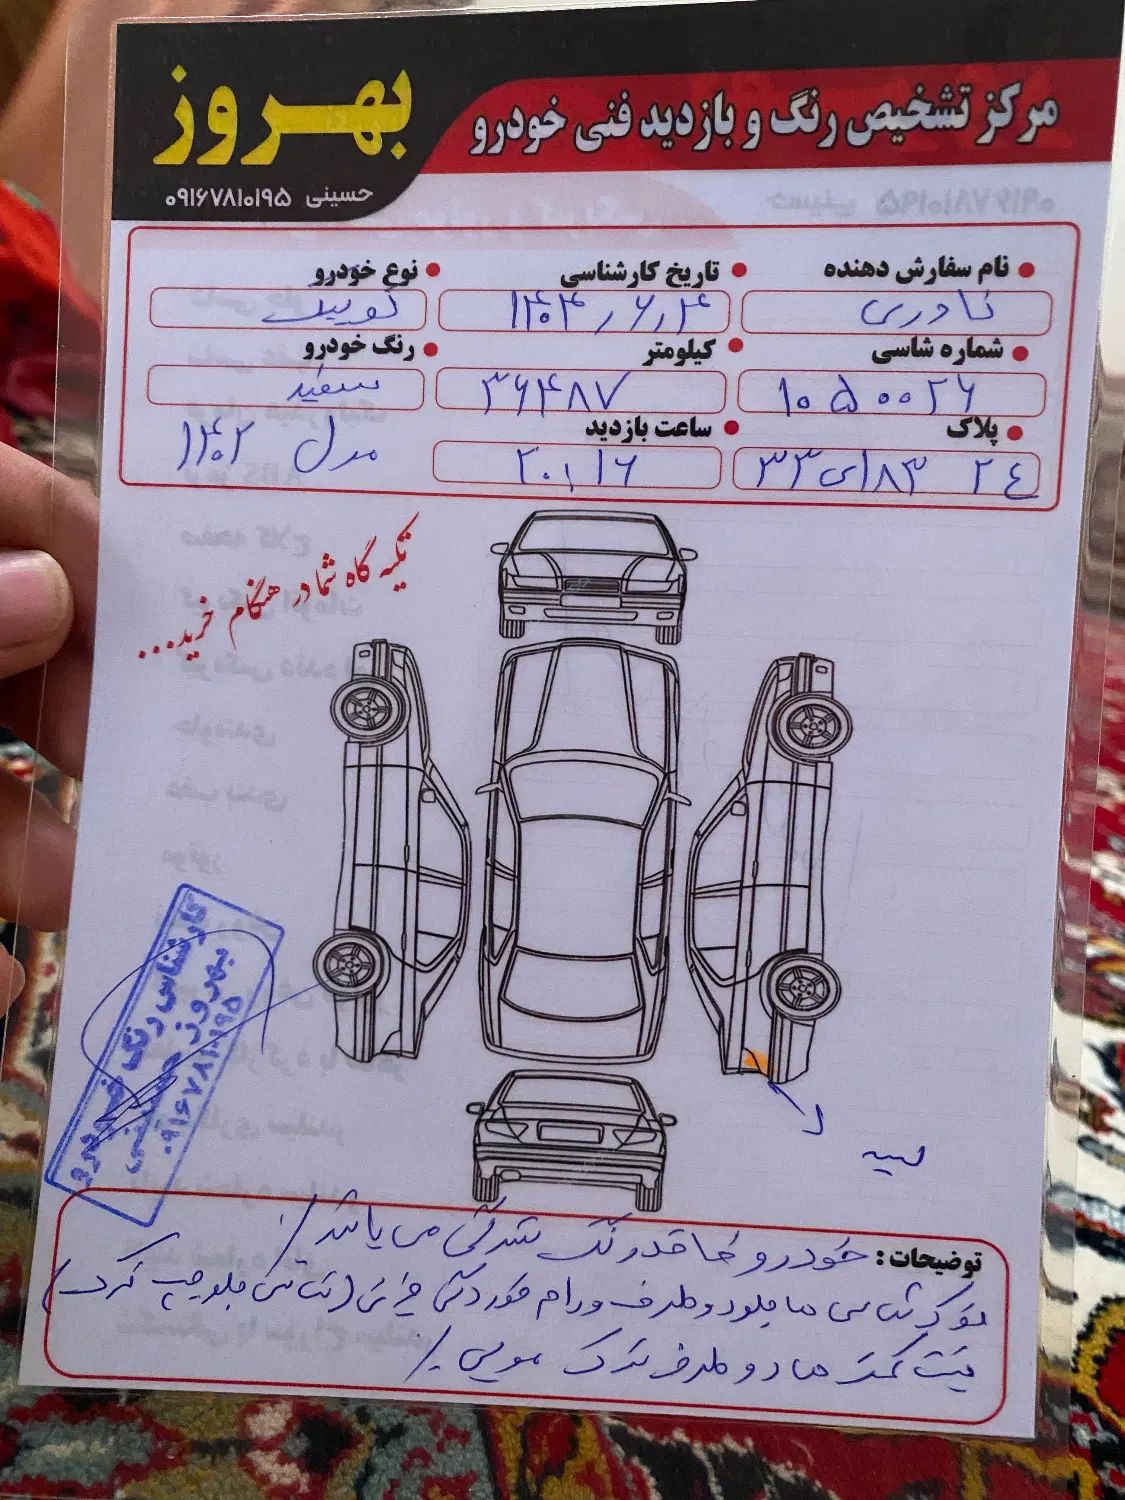 مرکز تشخیص رنگ و بازدید فنی خودرو
بهروز
حسینی ۰۹۱۶۷۸۱۰۱۹۵
نام سفارش دهنده
نادری
تاریخ کارشناسی
۱۴۰۴/۶/۴
نوع خودرو
کوییک
شماره شاسی
۱۰۵۰۰۲۶
کیلومتر
۳۶۴۸۷
رنگ خودرو
سفید
پلاک
۳۳ ای ۸۳ ۲۴
ساعت بازدید
۲۰:۱۶
مدل ۱۴۰۲
تکیه گاه شما در هنگام خرید...
کارشناس رنگ خودرو
بهروز حسینی
۰۹۱۶۷۸۱۰۱۹۵
توضیحات: خودرو فاقد رنگ شدگی می باشد/.
نوک شاسی ها جلو دو طرف ورام خوردگی جزئی (شاسی جلو چپ کرک)
پشت کمک ها دو طرف ترک مویی/.